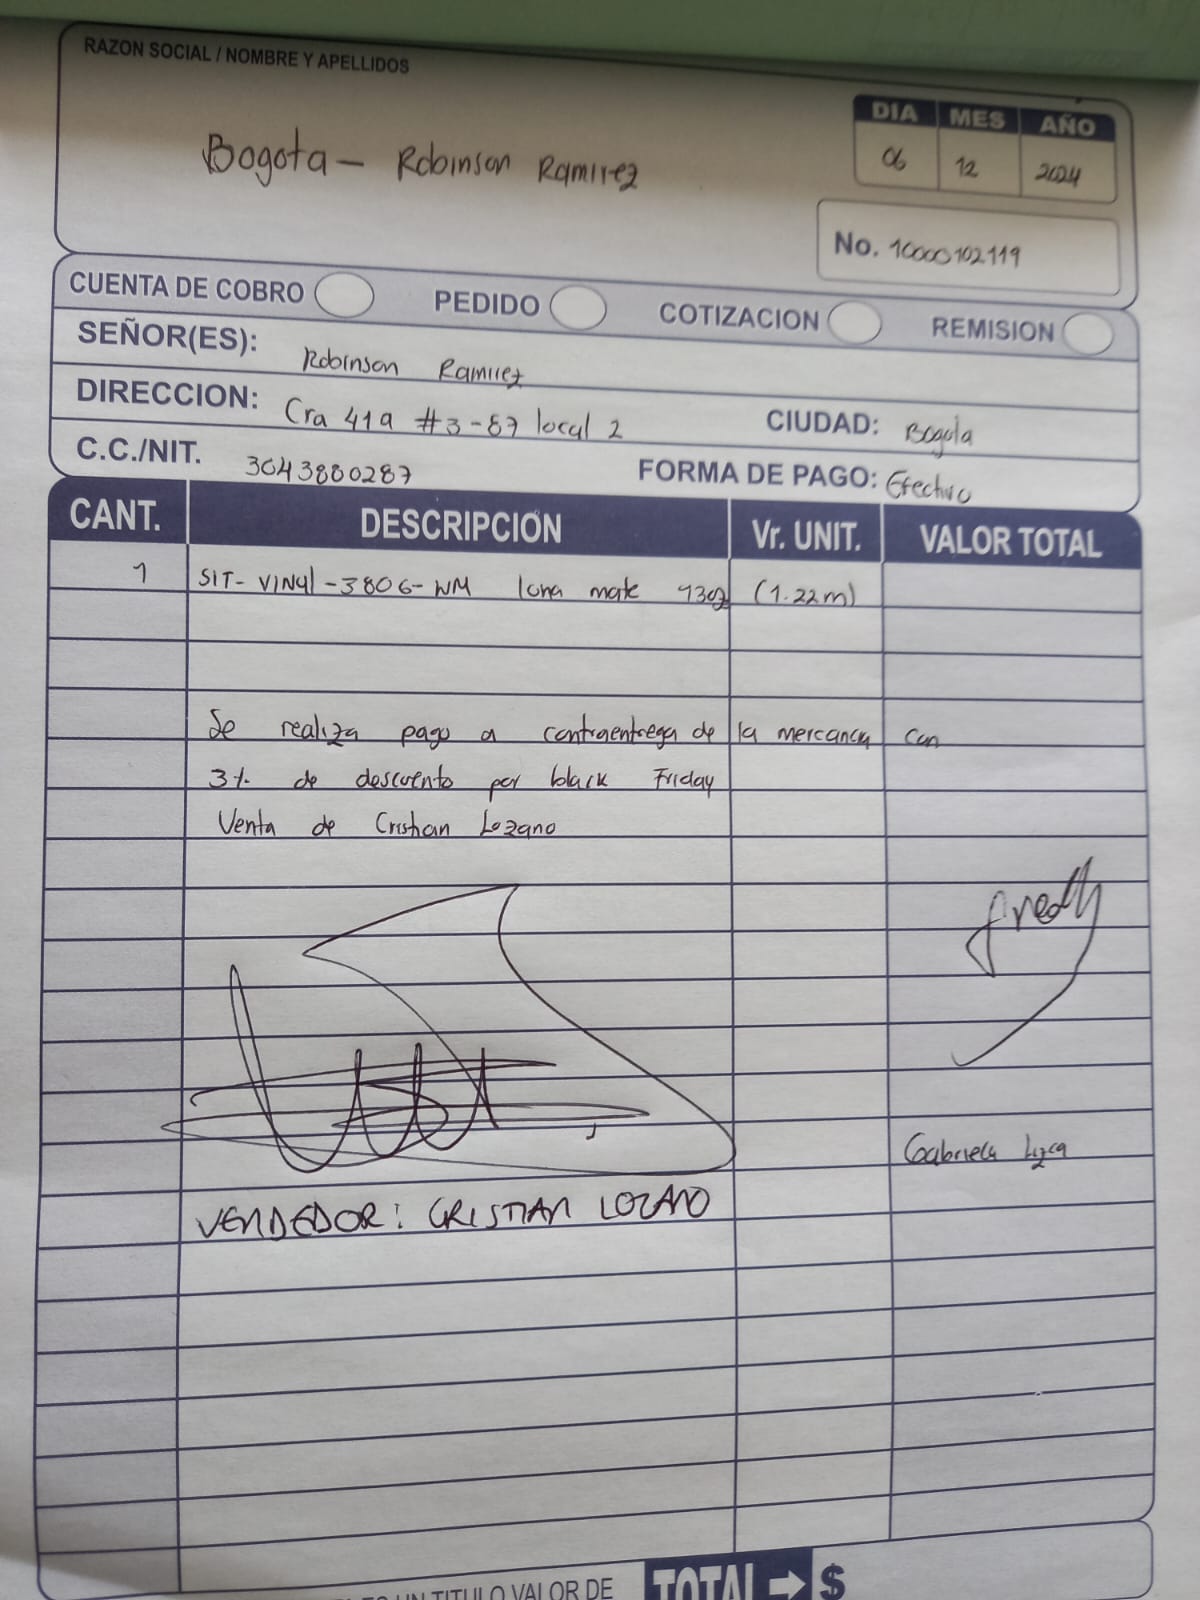 RAZON SOCIAL / NOMBRE Y APELLIDOS
Bogota - Robinson Ramirez
DIA MES AÑO
06 12 2024
No. 10000102119
CUENTA DE COBRO PEDIDO COTIZACION REMISION
SEÑOR(ES): Robinson Ramirez
DIRECCION: Cra 41a #3-87 local 2 CIUDAD: Bogota
C.C./NIT. 3043880287 FORMA DE PAGO: Efectivo
CANT. DESCRIPCIÓN Vr. UNIT. VALOR TOTAL
1 SIT-VINYL-3806-WM lona mate 13oz (1.22m)
Se realiza pago a contraentrega de la mercancia con
3% de descuento por black Friday
Venta de Cristian Lozano
fredy
Gabriela
VENDEDOR: CRISTIAN LOZANO
UN TITULO VALOR DE TOTAL → $